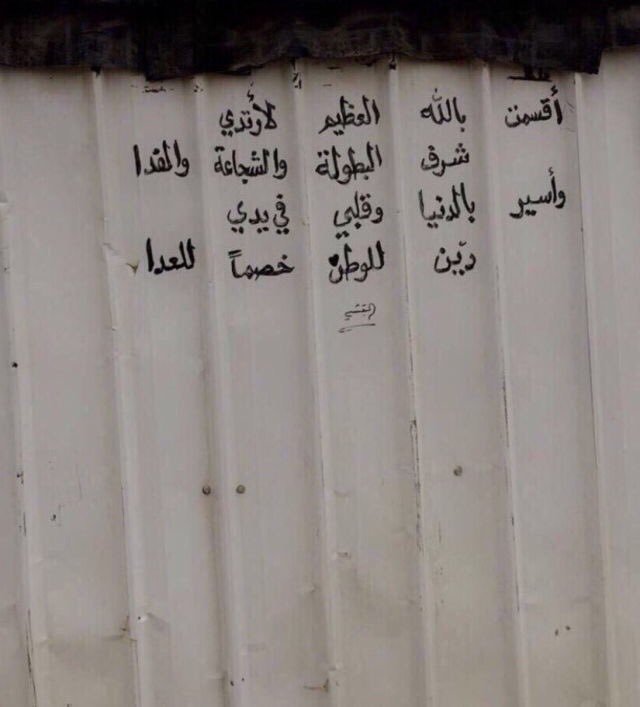 أقسمت بالله العظيم لأرتدي
شرف البطولة والشجاعة والفدا
وأسير بالدنيا وقلبي في يدي
دين للوطن خصماً للعدا